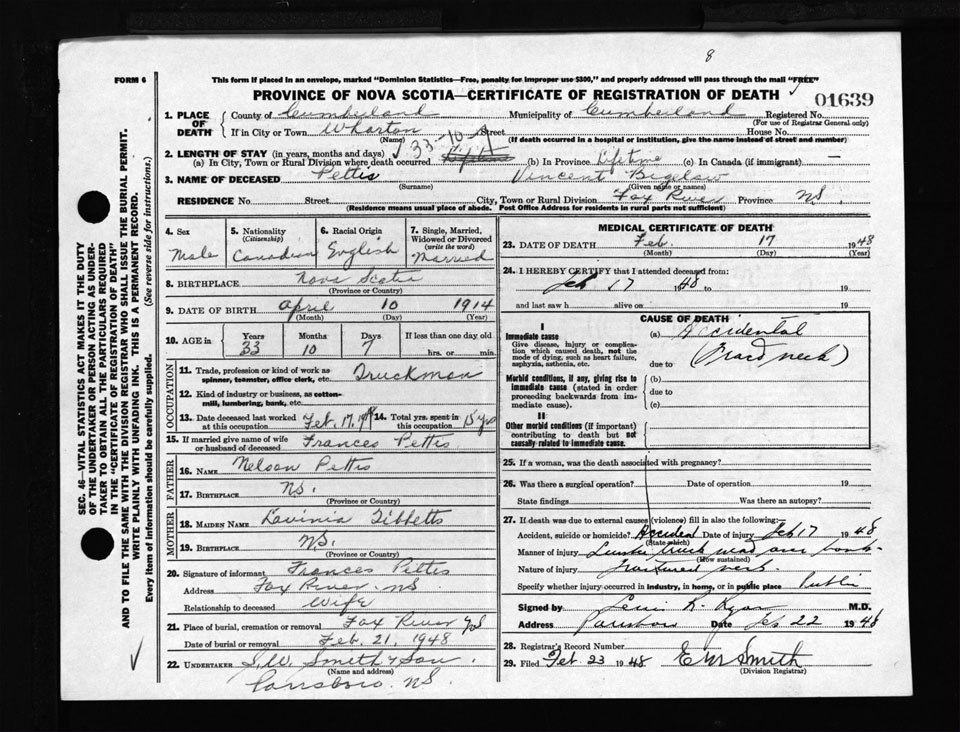 8
FORM 6
This form if placed in an envelope, marked "Dominion Statistics—Free, penalty for improper use $300," and properly addressed will pass through the mail "FREE"
PROVINCE OF NOVA SCOTIA—CERTIFICATE OF REGISTRATION OF DEATH
01639
1. PLACE OF DEATH County of Cumberland Municipality of Cumberland Registered No.
(For use of Registrar General only)
If in City or Town Wharton Street House No.
(Name) (If death occurred in a hospital or institution, give the name instead of street and number)
2. LENGTH OF STAY (in years, months and days) 33-10-7
(a) In City, Town or Rural Division where death occurred Lifetime (b) In Province Lifetime (c) In Canada (if immigrant) —
3. NAME OF DECEASED Pettis Vincent Bigelow
(Surname) (Given name or names)
RESIDENCE No. Street City, Town or Rural Division Fox River Province NS
(Residence means usual place of abode. Post Office Address for residents in rural parts not sufficient)
4. Sex Male
5. Nationality (Citizenship) Canadian
6. Racial Origin English
7. Single, Married, Widowed or Divorced (write the word) Married
8. BIRTHPLACE Nova Scotia
(Province or Country)
9. DATE OF BIRTH April 10 1914
(Month) (Day) (Year)
10. AGE in Years Months Days If less than one day old
33 10 7 hrs. or min.
OCCUPATION
11. Trade, profession or kind of work as spinner, teamster, office clerk, etc. Truckman
12. Kind of industry or business, as cotton-mill, lumbering, bank, etc.
13. Date deceased last worked at this occupation Feb. 17, 1948
14. Total yrs. spent in this occupation 15 yrs
15. If married give name of wife or husband of deceased Frances Pettis
FATHER
16. NAME Nelson Pettis
17. BIRTHPLACE NS.
(Province or Country)
MOTHER
18. MAIDEN NAME Lavinia Tibbetts
19. BIRTHPLACE N.S.
(Province or Country)
20. Signature of informant Frances Pettis
Address Fox River NS
Relationship to deceased Wife
21. Place of burial, cremation or removal Fox River NS
Date of burial or removal Feb. 21, 1948
22. UNDERTAKER S.W. Smith & Son
(Name and address)
Parrsboro. NS.
MEDICAL CERTIFICATE OF DEATH
23. DATE OF DEATH Feb. 17 1948
(Month) (Day) (Year)
24. I HEREBY CERTIFY that I attended deceased from:
Feb 17 1948 to 19
and last saw h alive on 19
CAUSE OF DEATH
I
Immediate cause
Give disease, injury or complication which caused death, not the mode of dying, such as heart failure, asphyxia, asthenia, etc.
(a) Accidental
due to neck)
Morbid conditions, if any, giving rise to immediate cause (stated in order proceeding backwards from immediate cause).
(b)
due to
(c)
II
Other morbid conditions (if important) contributing to death but not causally related to immediate cause.
25. If a woman, was the death associated with pregnancy?
26. Was there a surgical operation? Date of operation 19
State findings Was there an autopsy?
27. If death was due to external causes (violence) fill in also the following:
Accident, suicide or homicide? Accident Date of injury Feb 17 1948
(State which)
Manner of injury truck over bank
(How sustained)
Nature of injury fractured neck.
Specify whether injury occurred in industry, in home, or in public place Public
Signed by M.D.
Address Parrsboro Date Feb 22 1948
28. Registrar's Record Number
29. Filed Feb. 23 1948 E W Smith
(Division Registrar)
SEC. 46—VITAL STATISTICS ACT MAKES IT THE DUTY
OF THE UNDERTAKER OR PERSON ACTING AS UNDER-
TAKER TO OBTAIN ALL THE PARTICULARS REQUIRED
IN THE "CERTIFICATE OF REGISTRATION OF DEATH"
AND TO FILE THE SAME WITH THE DIVISION REGISTRAR WHO SHALL ISSUE THE BURIAL PERMIT.
WRITE PLAINLY WITH UNFADING INK. THIS IS A PERMANENT RECORD.
Every item of information should be carefully supplied. (See reverse side for instructions.)